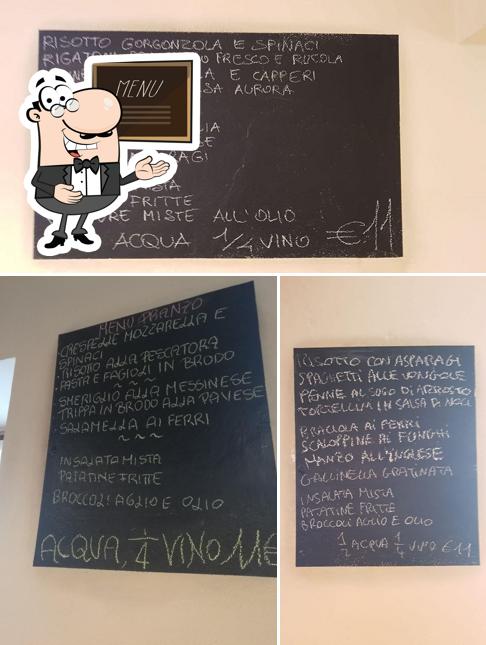 RISOTTO GORGONZOLA E SPINACI
FRESCO E RUCOLA
E CAPPERI
SA AURORA
MENU
FRITTE
MISTE ALL'OLIO
ACQUA 1/4 VINO €11
MENU PRANZO
-CRESPELLE MOZZARELLA E
SPINACI
-RISOTTO ALLA PESCATORA
-PASTA E FAGIOLI IN BRODO
~ ~ ~
SMERIGLIO ALLA MESSINESE
TRIPPA IN BRODO ALLA PAVESE
-SALAMELLA AI FERRI
~ ~ ~
INSALATA MISTA
PATATINE FRITTE
BROCCOLI AGLIO E OLIO
ACQUA, 1/4 VINO 11€
RISOTTO CON ASPARAGI
SPAGHETTI ALLE VONGOLE
PENNE AL SUGO DI ARROSTO
TORTELLINI IN SALSA DI NOCI
BRACIOLA AI FERRI
SCALOPPINE AI FUNGHI
MANZO ALL'INGLESE
GALLINELLA GRATINATA
INSALATA MISTA
PATATINE FRITTE
BROCCOLI AGLIO E OLIO
1/2 ACQUA 1/4 VINO €11